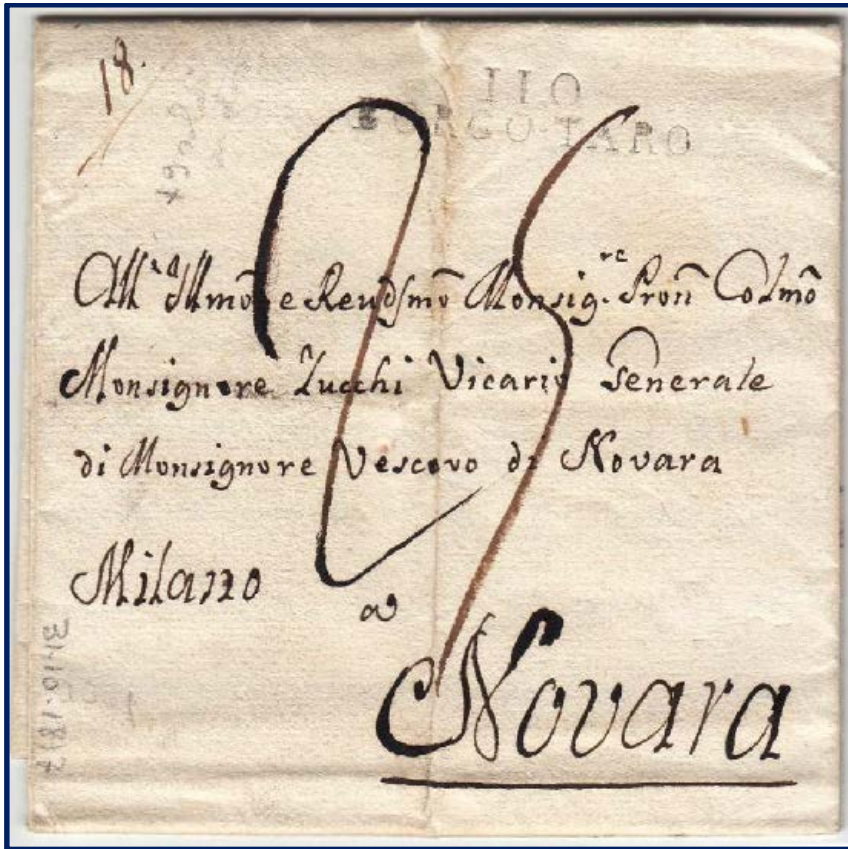 18.
110
BORGO-TARO
25
All' Illmo e Revdsmo Monsig.re Pron Colmo
Monsignore Zucchi Vicario Generale
di Monsignore Vescovo di Novara
Milano
a
Novara